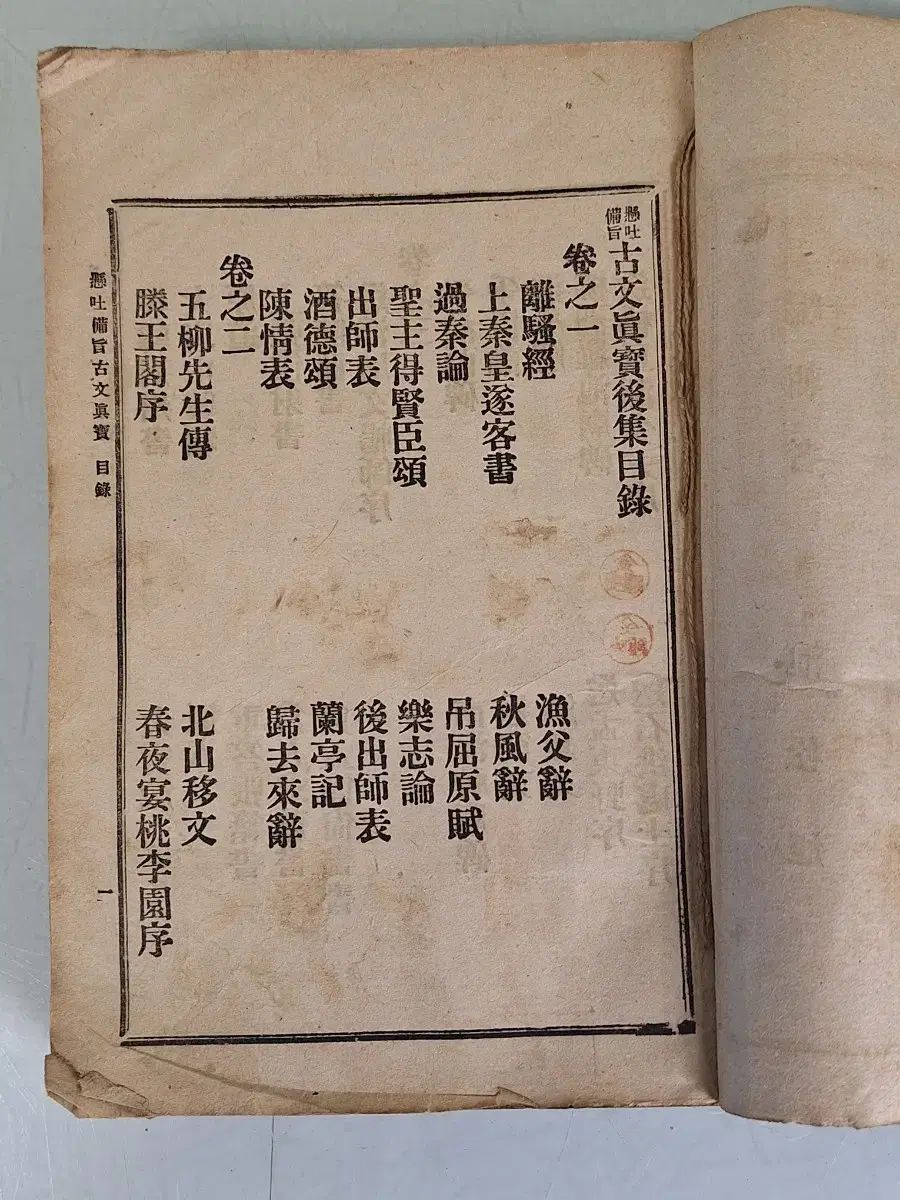 懸吐備旨古文眞寶後集目錄
卷之一
離騷經
漁父辭
上秦皇逐客書
秋風辭
過秦論
吊屈原賦
聖主得賢臣頌
樂志論
出師表
後出師表
酒德頌
蘭亭記
陳情表
歸去來辭
卷之二
五柳先生傳
北山移文
滕王閣序
春夜宴桃李園序
懸吐備旨古文眞寶 目錄
一